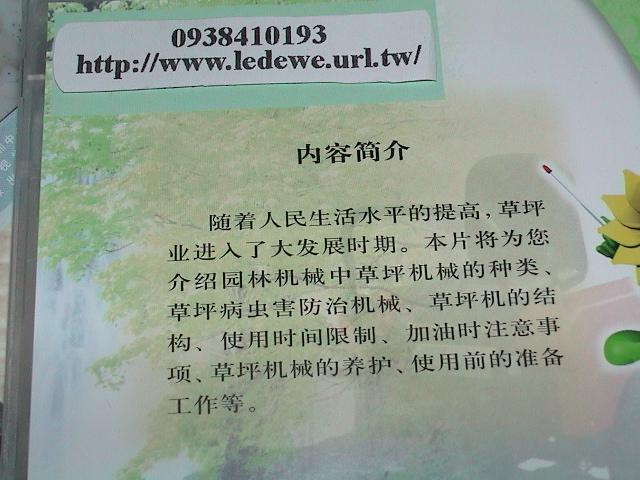 0938410193
http://www.ledewe.url.tw/
内容简介
随着人民生活水平的提高，草坪
业进入了大发展时期。本片将为您
介绍园林机械中草坪机械的种类、
草坪病虫害防治机械、草坪机的结
构、使用时间限制、加油时注意事
项、草坪机械的养护、使用前的准备
工作等。